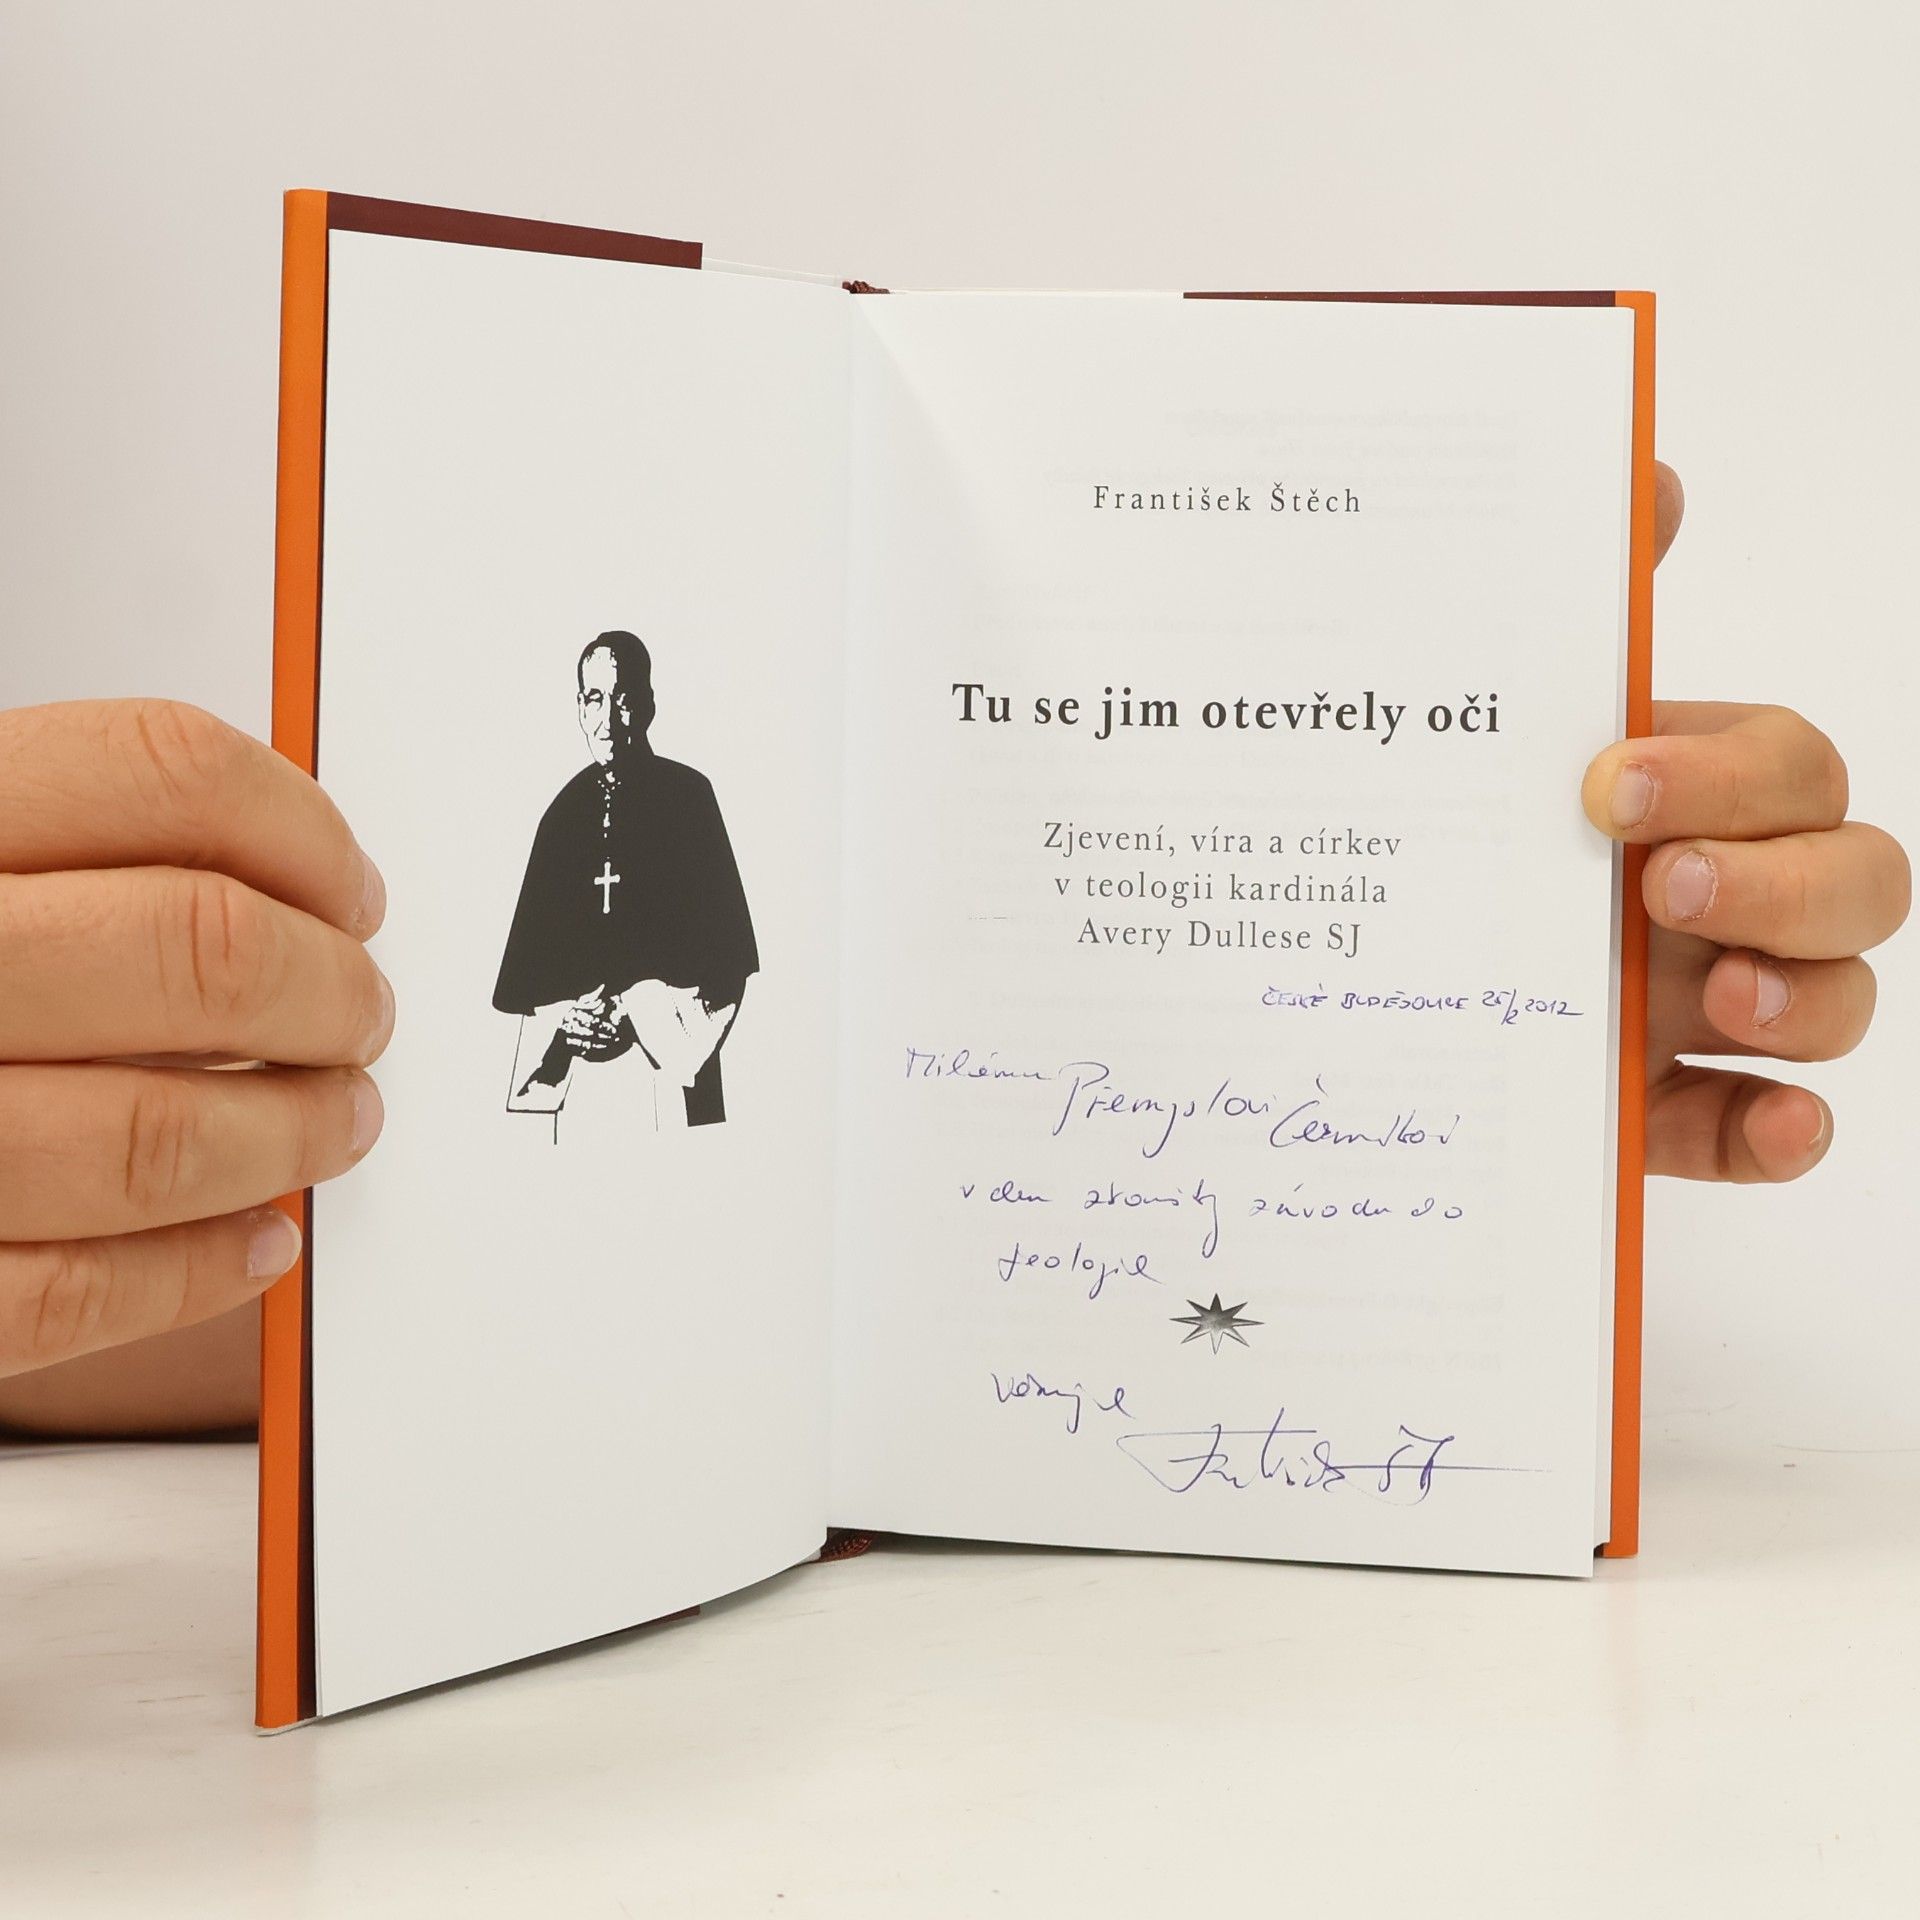 František Štěch
Tu se jim otevřely oči
Zjevení, víra a církev
v teologii kardinála
Avery Dullese SJ
ČESKÉ BUDĚJOVICE 25/2 2012
Milému Přemyslovi
v den zkoušky z úvodu do
teologie
věnuje